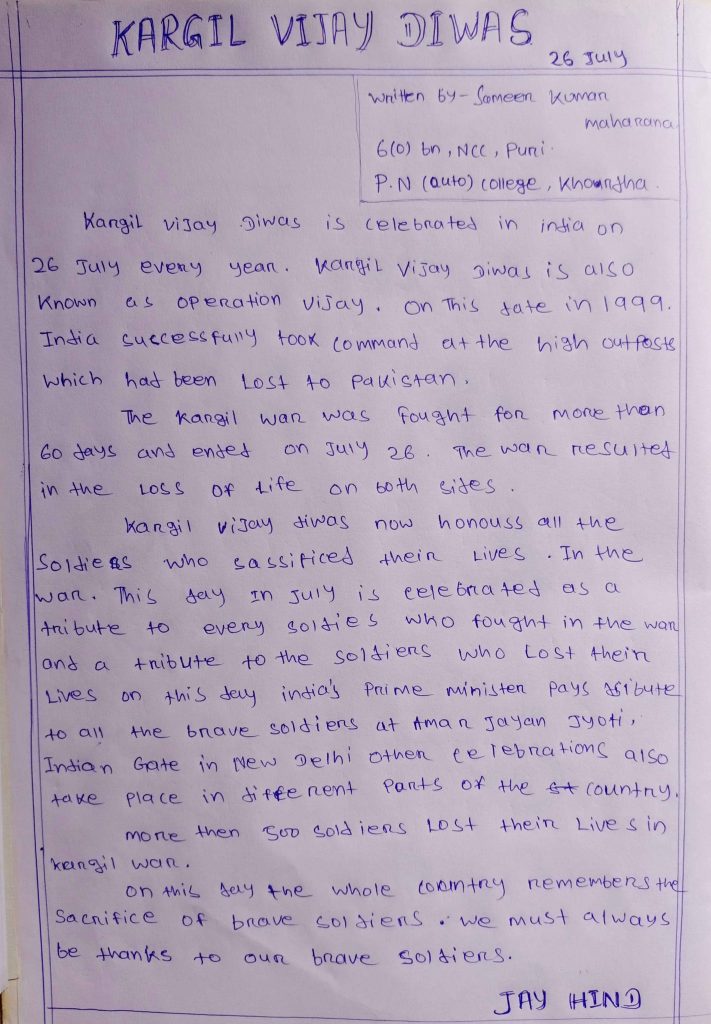 KARGIL VIJAY DIWAS
26 July
Written by - Someen Kumar
maharana
6(O) bn, NCC, Puri.
P.N (auto) college, Khourdha.
Kargil vijay Diwas is celebrated in india on
26 July every year. Kargil Vijay Diwas is also
Known as operation vijay. On This date in 1999.
India successfully took command at the high outposts
which had been Lost to Pakistan.
The Kargil war was fought for more than
60 days and ended on July 26. The war resulted
in the Loss of Life on both sides.
Kargil vijay diwas now honouss all the
Soldiers who sassificed their Lives. In the
war. This day In July is celebrated as a
tribute to every soldies who fought in the war
and a tribute to the soldiers who Lost their
Lives on this day india's Prime minister pays tribute
to all the brave soldiers at Amar Jayan Jyoti,
Indian Gate in New Delhi other celebrations also
take place in different parts of the country.
more then 500 soldiers Lost their Lives in
kargil war.
on this day the whole country remembers the
Sacrifice of brave soldiers. we must always
be thanks to our brave soldiers.
JAY HIND